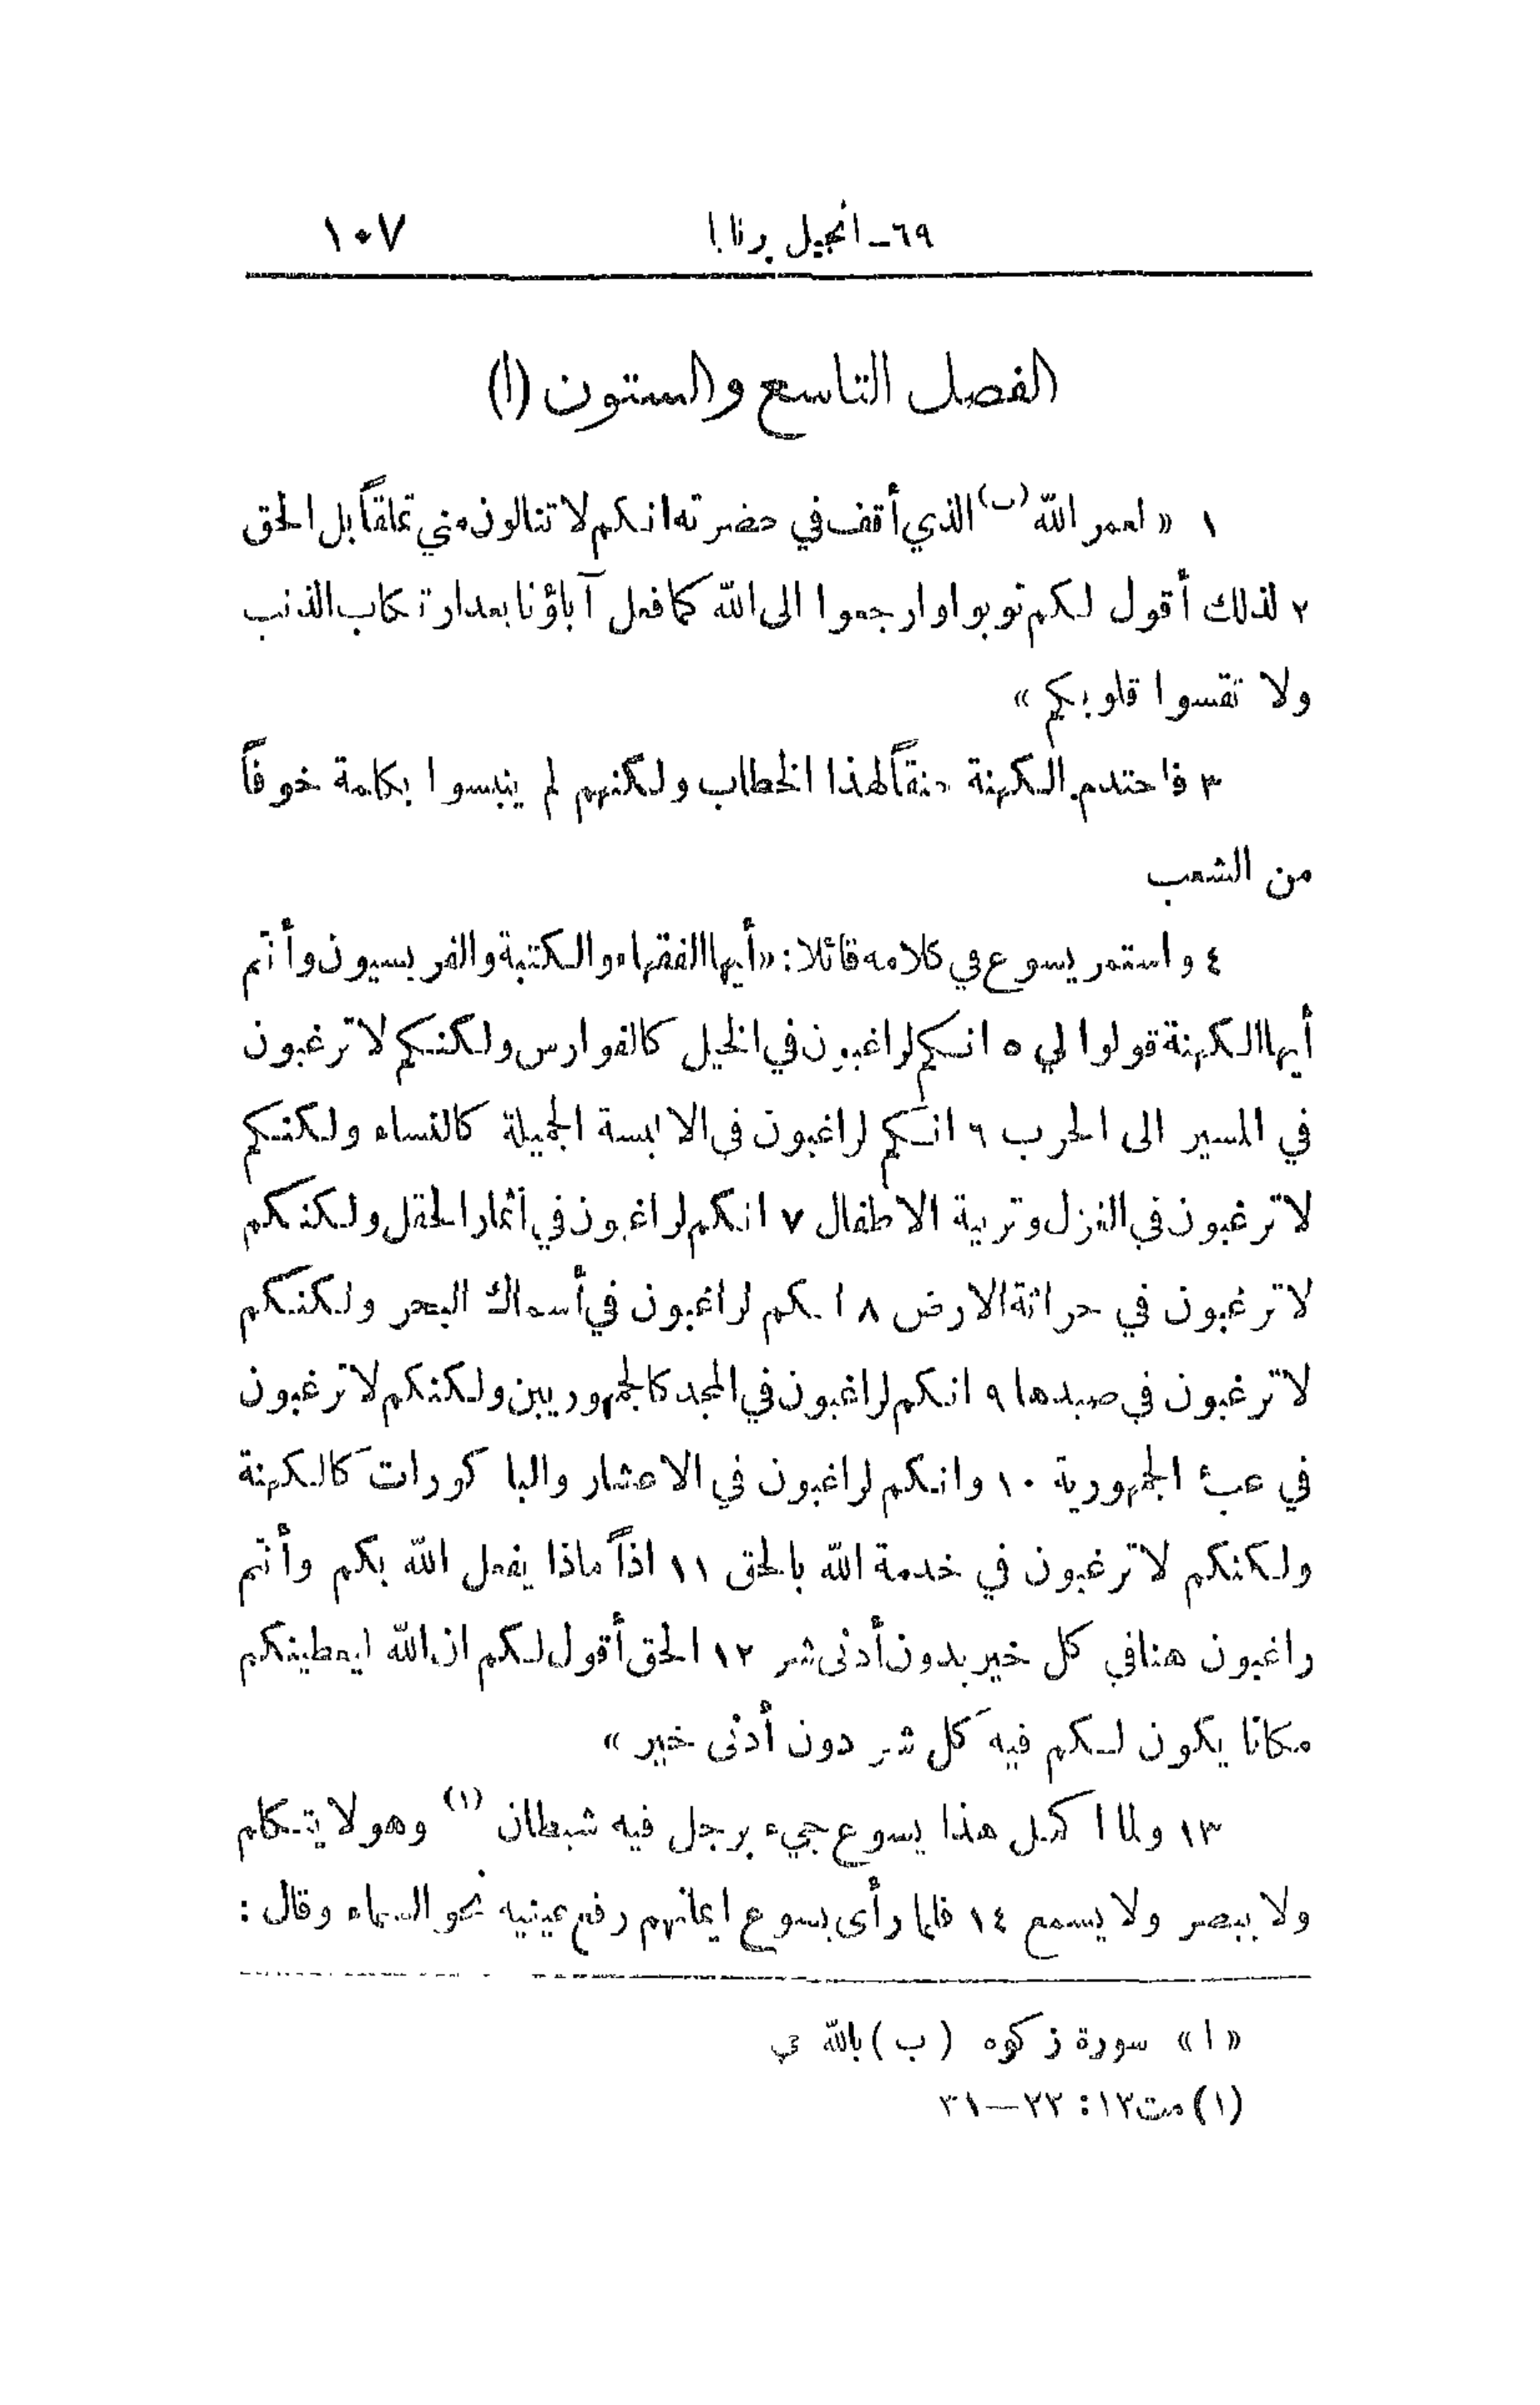 ٦٩ـ انجيل برنابا ١٠٧
الفصل التاسع والستون (ا)
١ «لعمر الله (ب) الذي أقف في حضرته انكم لا تنالون مني تملقاً بل الحق
٢ لذلك أقول لكم توبوا وارجعوا الى الله كما فعل آباؤنا بعد ارتكاب الذنب
ولا تقسوا قلوبكم»
٣ فاحتدم الكهنة حنقاً لهذا الخطاب ولكنهم لم ينبسوا بكلمة خوفاً
من الشعب
٤ واستمر يسوع في كلامه قائلا: «أيها الفقهاء والكتبة والفريسيون وأنتم
أيها الكهنة قولوا لي ٥ انكم لراغبون في الخيل كالفوارس ولكنكم لا ترغبون
في المسير الى الحرب ٦ انكم لراغبون في الالبسة الجميلة كالنساء ولكنكم
لا ترغبون في الغزل وتربية الاطفال ٧ انكم لراغبون في أثمار الحقل ولكنكم
لا ترغبون في حراثة الارض ٨ انكم لراغبون في أسماك البحر ولكنكم
لا ترغبون في صيدها ٩ انكم لراغبون في المجد كالجمهوريين ولكنكم لا ترغبون
في عبء الجمهورية ١٠ وانكم لراغبون في الاعشار والباكورات كالكهنة
ولكنكم لا ترغبون في خدمة الله بالحق ١١ اذاً ماذا يفعل الله بكم وأنتم
راغبون هنا في كل خير بدون أدنى شر ١٢ الحق أقول لكم ان الله ليعطينكم
مكانا يكون لكم فيه كل شر دون أدنى خير»
١٣ ولما اكمل هذا يسوع جيء برجل فيه شيطان (١) وهو لا يتكلم
ولا يبصر ولا يسمع ١٤ فلما رأى يسوع ايمانهم رفع عينيه نحو السماء وقال:
«ا» سورة زكوه (ب) بالله حي
(١) مت ١٢: ٢٢—٣١